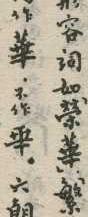 形容詞如榮華繁
作華不作華。六朝